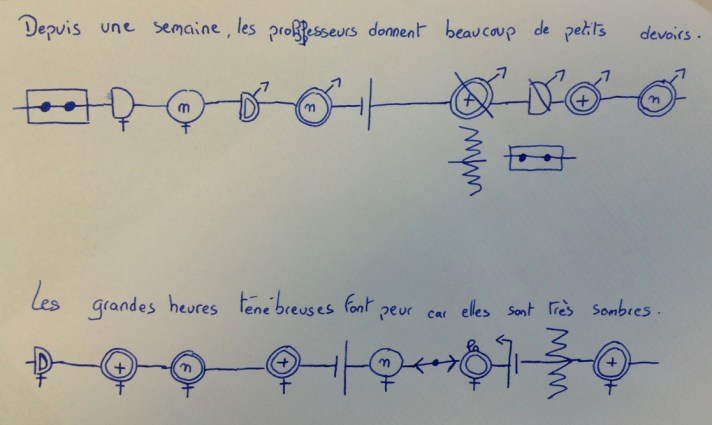 Depuis une semaine, les professeurs donnent beaucoup de petits devoirs.
D n D n + D + n
Les grandes heures ténébreuses font peur car elles sont très sombres.
D + n + n +